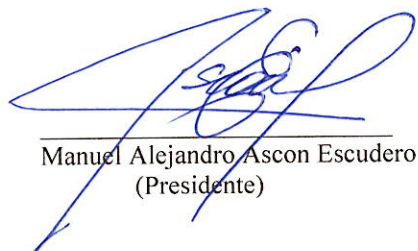 Manuel Alejandro Ascon Escudero
(Presidente)